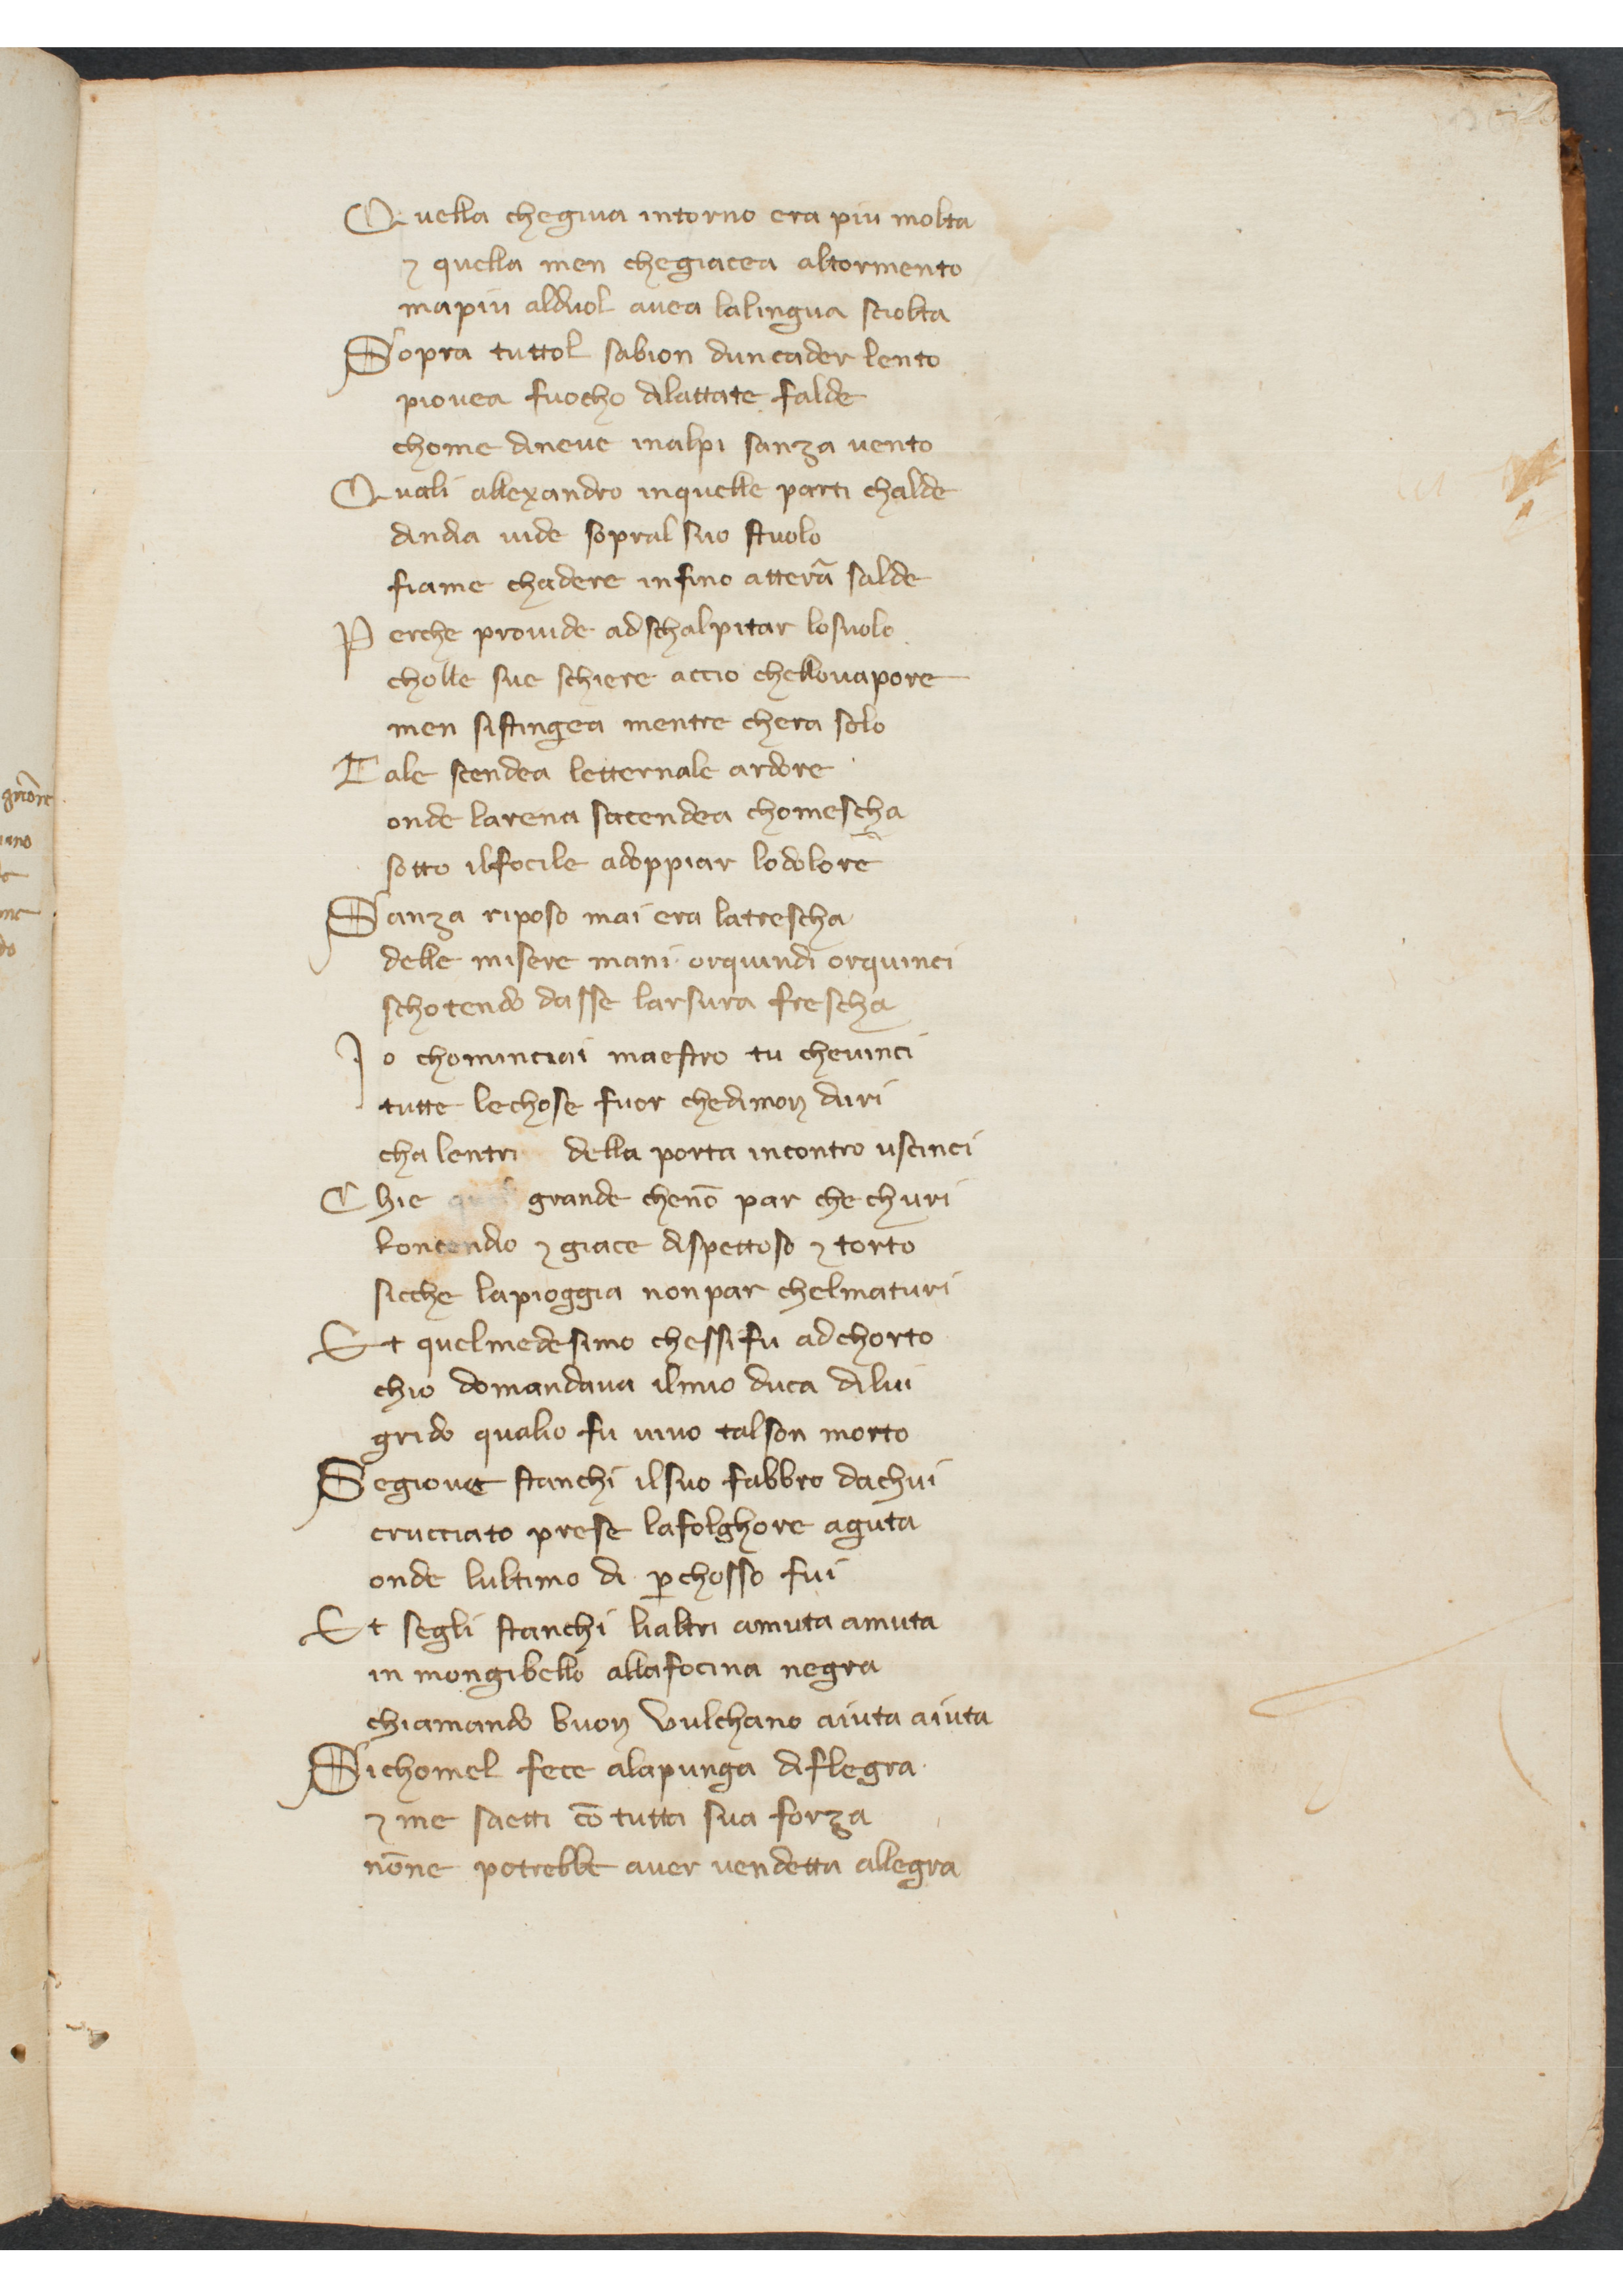 Quella chegiua intorno era piu molta
⁊ quella men chegiacea altormento
mapiu alduol auea lalingua sciolta
Sopra tuttol sabion duncader lento
piouea fuocho dilattate falde
chome dineue inalpi sanza uento
Quali allexandro inquelle parti chalde
dindia uide sopral suo stuolo
fiame chadere infino atterā salde
Perche prouide adschalpitar losuolo
cholle sue schiere accio chellouapore
men sistingea mentre chera solo
Tale scendea letternale ardore
onde larena sacendea chomescha
sotto ilfocile adoppiar lodolore
Sanza riposo mai era latrescha
delle misere mani orquindi orquinci
schotendo dasse larsura frescha
Io chominciai maestro tu cheuinci
tutte lechose fuor chedimon duri
cha lentri della porta incontro uscinci
Chie quel grande chenō par che churi
loncendio ⁊ giace dispettoso ⁊ torto
sicche lapioggia nonpar chelmaturi
Et quelmedesimo chessifu adchorto
chio domandaua ilmio duca dilui
grido qualio fu uiuo talson morto
Segioue stanchi ilsuo fabbro dachui
crucciato prese lafolghore aguta
onde lultimo di ꝑchosso fui
Et segli stanchi lialtri amuta amuta
in mongibello allafocina negra
chiamando buon Vulchano aiuta aiuta
Sichomel fece alapunga diflegra
⁊ me saetti cō tutta sua forza
nōne potrebbe auer uendetta allegra